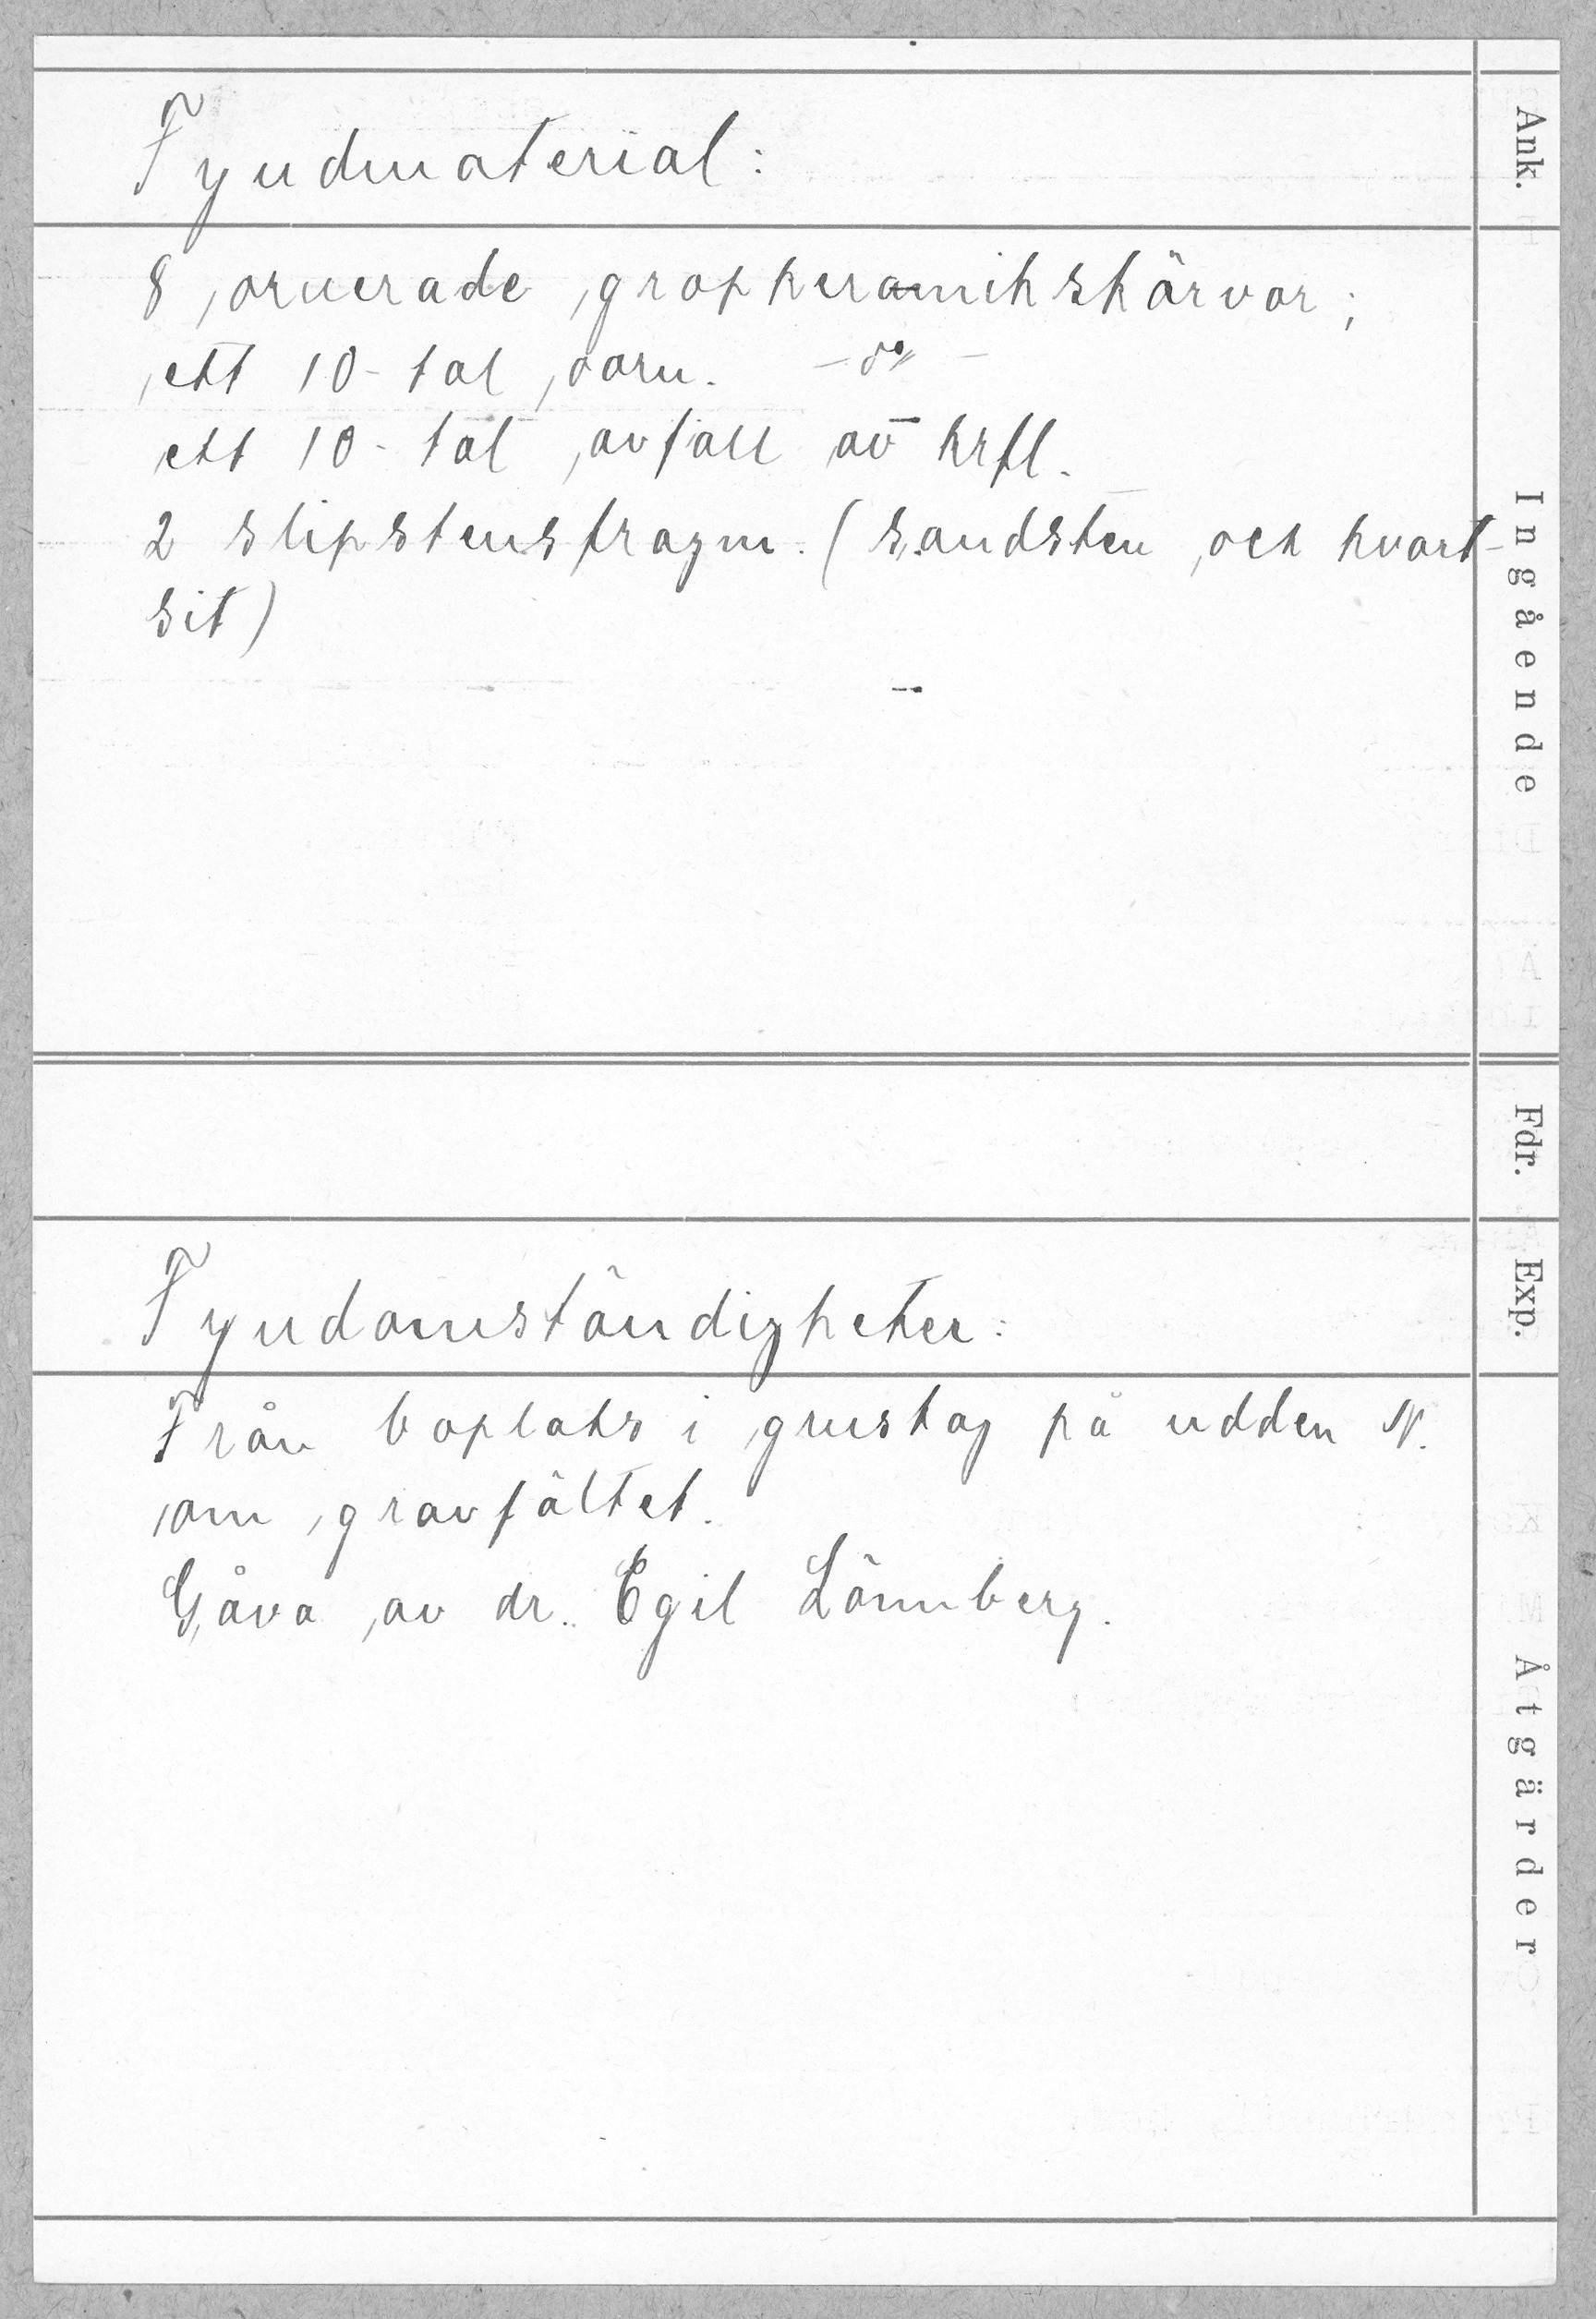 Fyndmaterial:
8 ornerade gropkeramikskärvor;
ett 10-tal oorn. -d:o-
ett 10-tal avfall av krfl.
2 slipstensfragm. (sandsten och kvart-
sit)
Fyndomständigheter:
Från boplats i grustag på udden N.
om gravfältet.
Gåva av dr. Egil Lönnberg.
Ank.
Ingående
Fdr.
Exp.
Åtgärder